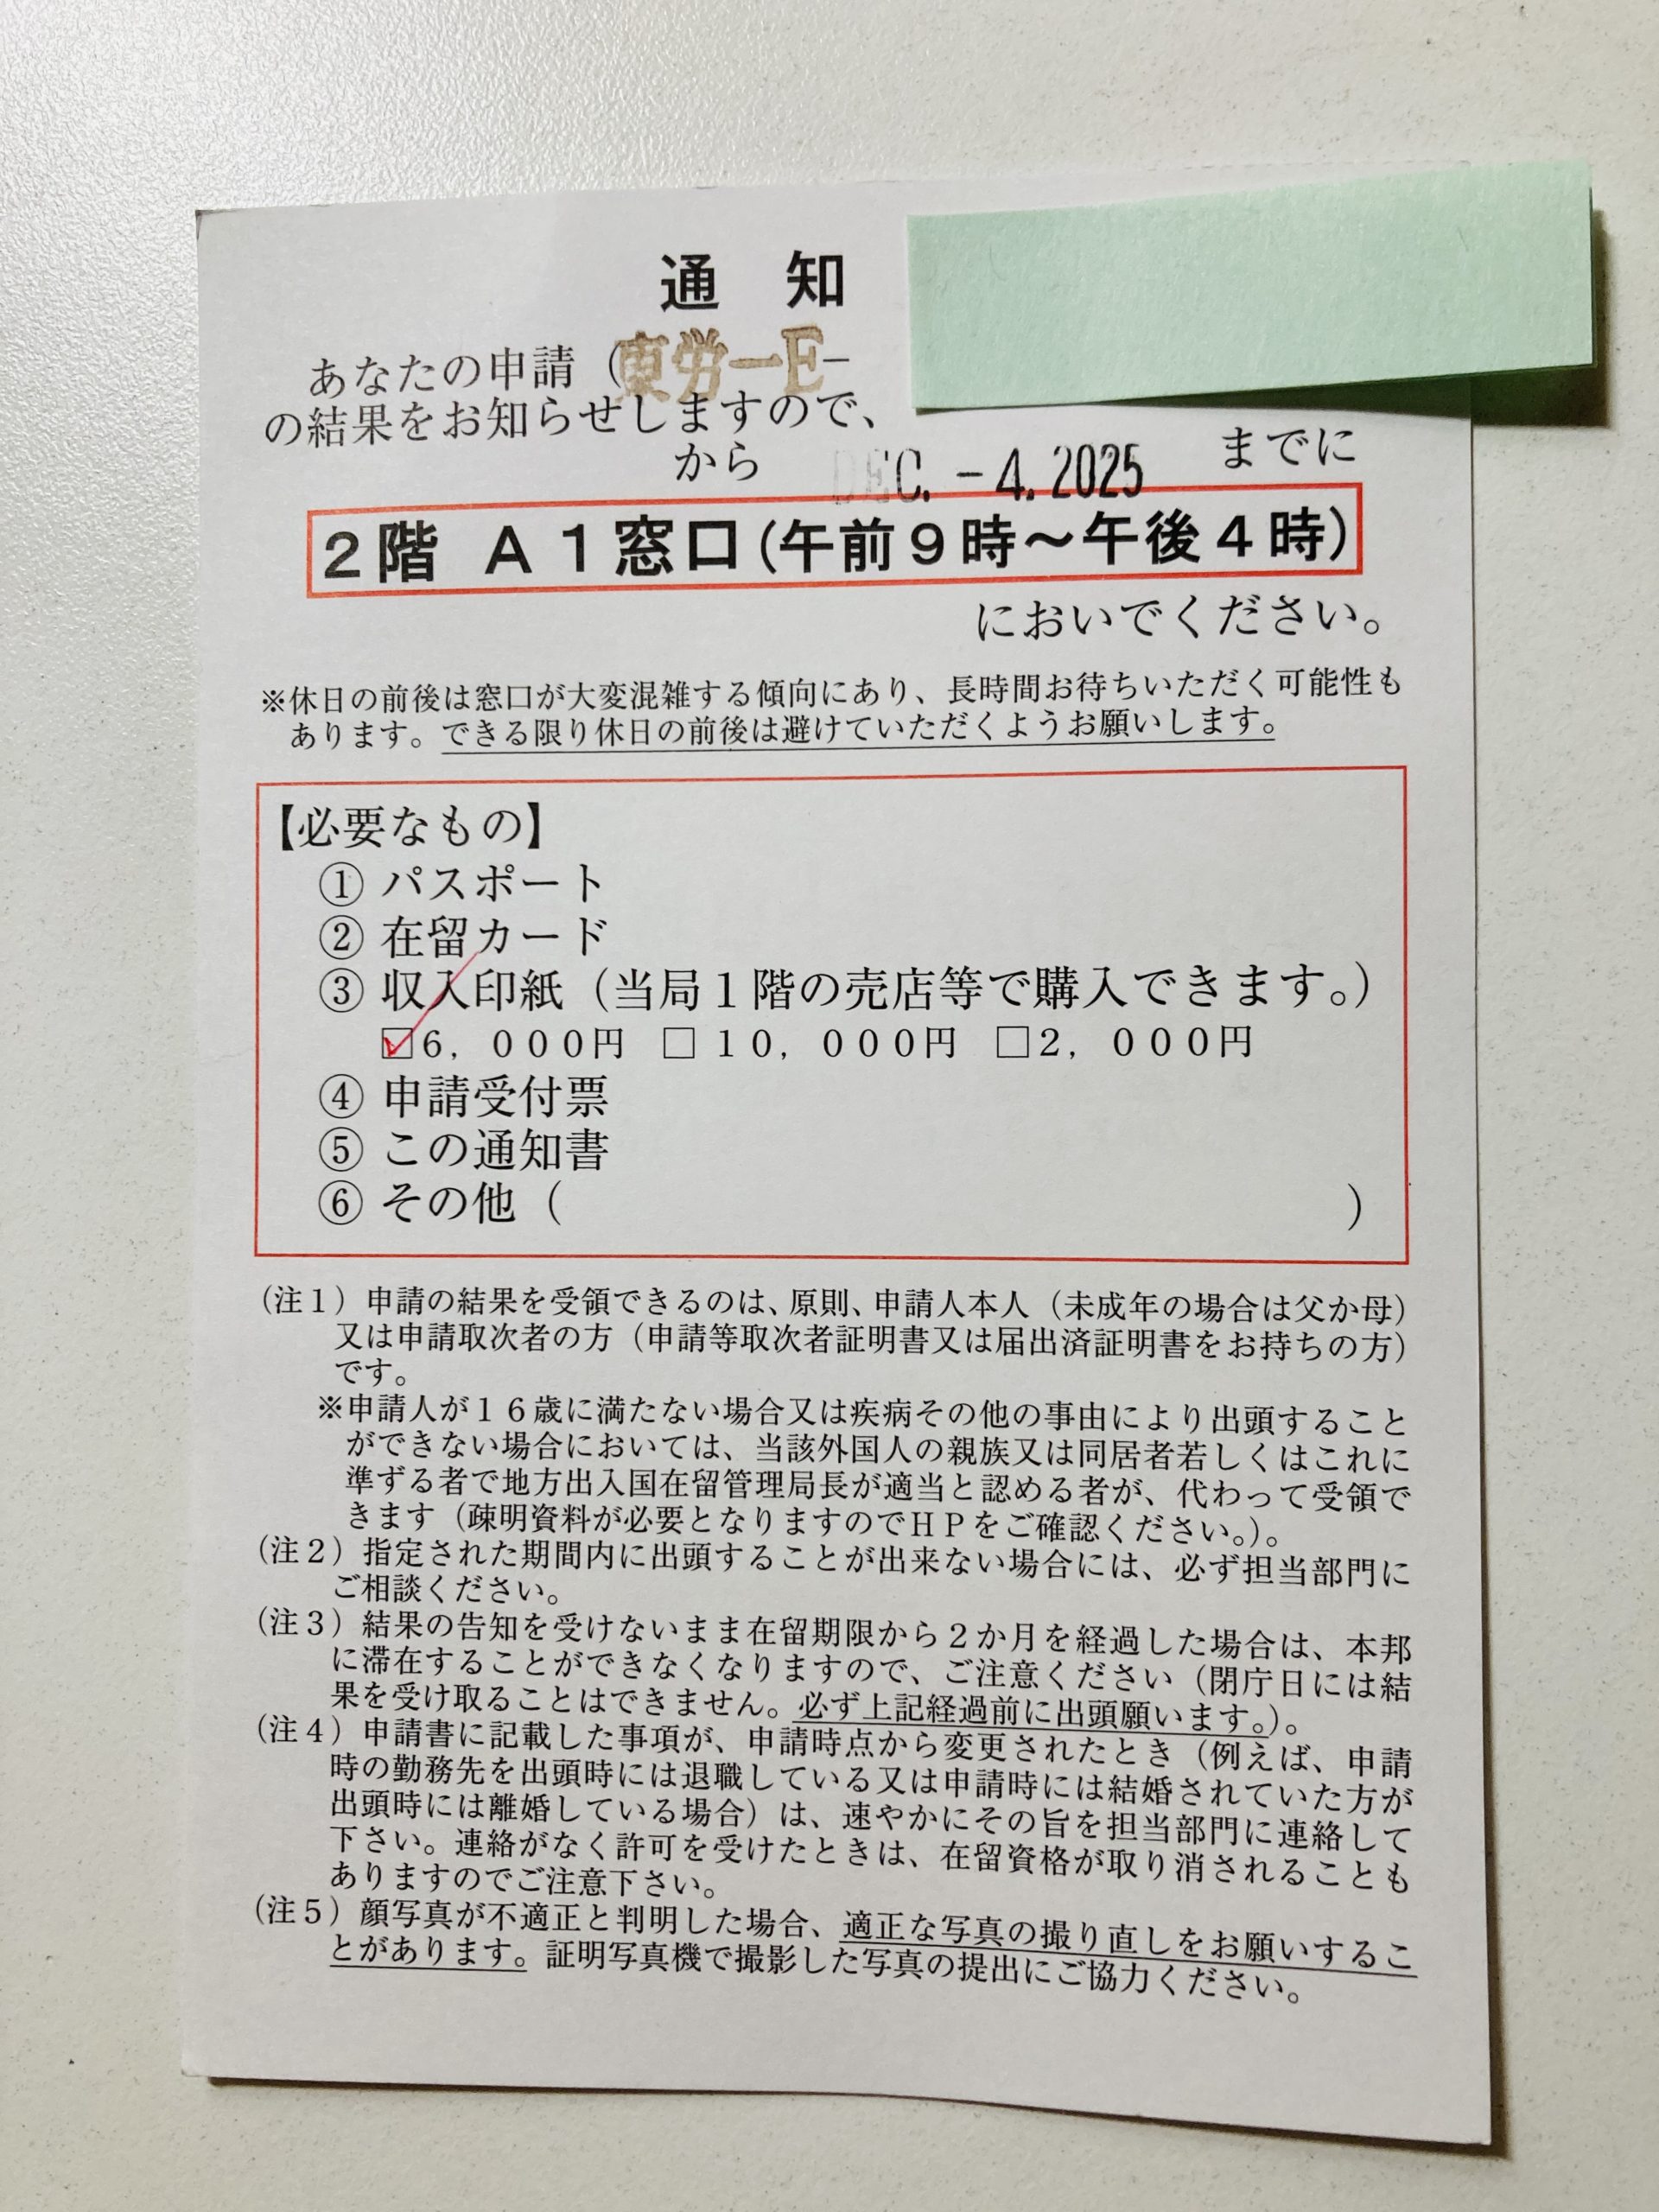 通 知
あなたの申請（東労一E－
の結果をお知らせしますので、
から DEC. －4. 2025 までに
２階 Ａ１窓口(午前９時～午後４時)
においでください。
※休日の前後は窓口が大変混雑する傾向にあり、長時間お待ちいただく可能性も
あります。できる限り休日の前後は避けていただくようお願いします。
【必要なもの】
① パスポート
② 在留カード
③ 収入印紙（当局１階の売店等で購入できます。）
☑６，０００円 □１０，０００円 □２，０００円
④ 申請受付票
⑤ この通知書
⑥ その他（ ）
（注１）申請の結果を受領できるのは、原則、申請人本人（未成年の場合は父か母）
又は申請取次者の方（申請等取次者証明書又は届出済証明書をお持ちの方）
です。
※申請人が１６歳に満たない場合又は疾病その他の事由により出頭すること
ができない場合においては、当該外国人の親族又は同居者若しくはこれに
準ずる者で地方出入国在留管理局長が適当と認める者が、代わって受領で
きます（疎明資料が必要となりますのでＨＰをご確認ください。）。
（注２）指定された期間内に出頭することが出来ない場合には、必ず担当部門に
ご相談ください。
（注３）結果の告知を受けないまま在留期限から２か月を経過した場合は、本邦
に滞在することができなくなりますので、ご注意ください（閉庁日には結
果を受け取ることはできません。必ず上記経過前に出頭願います。）。
（注４）申請書に記載した事項が、申請時点から変更されたとき（例えば、申請
時の勤務先を出頭時には退職している又は申請時には結婚されていた方が
出頭時には離婚している場合）は、速やかにその旨を担当部門に連絡して
下さい。連絡がなく許可を受けたときは、在留資格が取り消されることも
ありますのでご注意下さい。
（注５）顔写真が不適正と判明した場合、適正な写真の撮り直しをお願いするこ
とがあります。証明写真機で撮影した写真の提出にご協力ください。